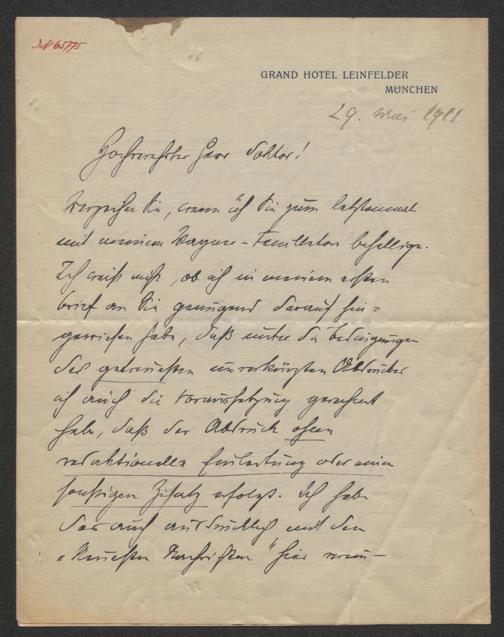 IN 65775
GRAND HOTEL LEINFELDER
MÜNCHEN
29. Mai 1911
Hochverehrter Herr Doktor!
Verzeihen Sie, wenn ich Sie zum letztenmal
mit meinem Wagner-Feuilleton behellige.
Ich weiß nicht, ob ich in meinem ersten
Brief an Sie genügend darauf hin-
gewiesen habe, daß unter die Bedingungen
des unverkürzten Abdruckes
ich auch die Voraussetzung gerechnet
habe, daß der Abdruck ohne
redaktionelle Einleitung oder einen
sonstigen Zusatz erfolgt. Ich habe
das auch ausdrücklich mit den
"Neuesten Nachrichten" hier verein-